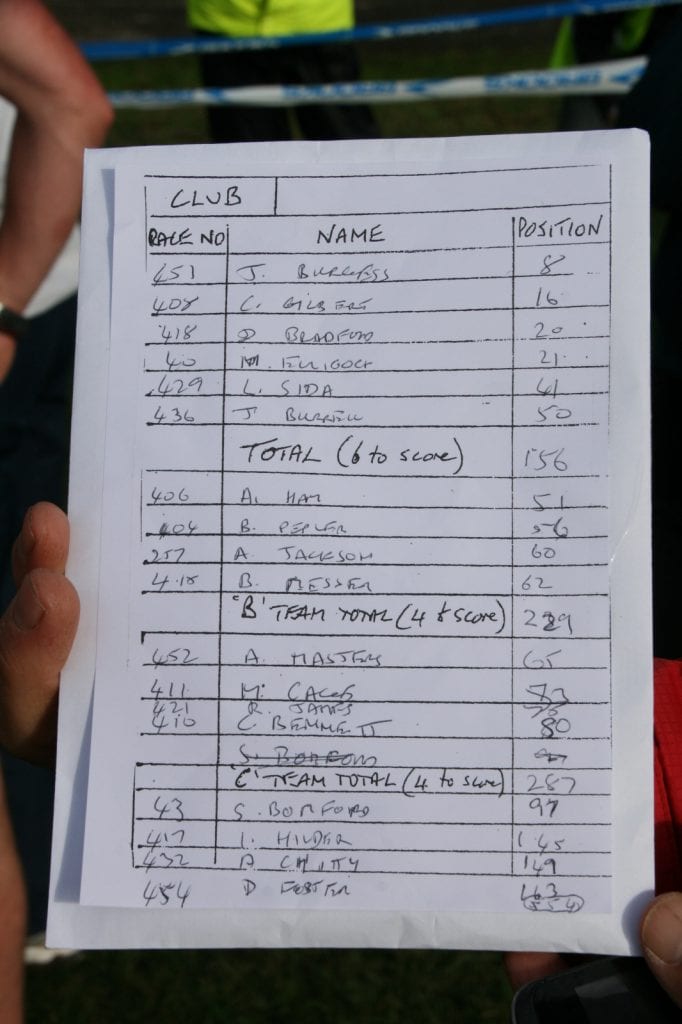 CLUB
RACE NO NAME POSITION
451 J. BURGESS 8
408 C. GILBERT 16
418 D BRADFORD 20
40 M. 21
429 L. SIDA 41
436 J BURRELL 50
TOTAL (6 to score) 156
406 A. HAM 51
404 B. PEPLER 56
257 A JACKSON 60
418 B. MESSER 62
'B' TEAM TOTAL (4 to score) 229
452 A MASTERS 65
411 M. CAGE 73
421 R. JAMES
410 C. BENNETT 80
'C' TEAM TOTAL (4 to score) 287
43 S. BOMFORD 97
417 I. HILDER 145
432 D CHITTY 149
454 D FOSTER 163
554